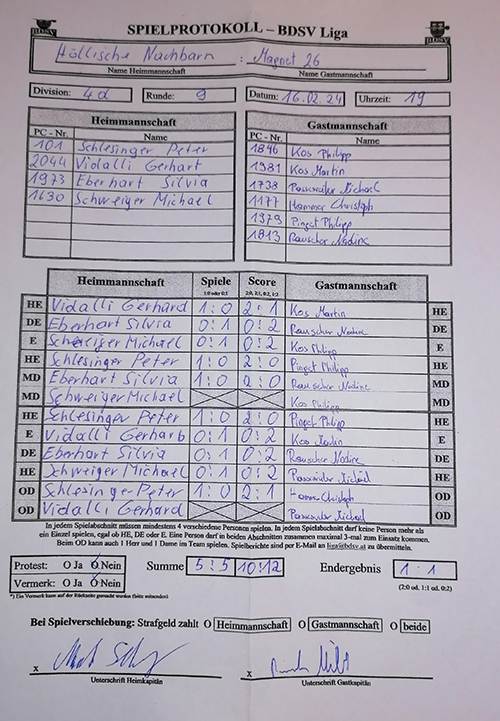 SPIELPROTOKOLL – BDSV Liga
BDSV
BDSV
Höllische Nachbarn : Magnet 26
Name Heimmannschaft Name Gastmannschaft
Division: 4d Runde: 9 Datum: 16.02.24 Uhrzeit: 19
Heimmannschaft
PC - Nr. Name
101 Schlesinger Peter
2044 Vidalli Gerhart
1973 Eberhart Silvia
1630 Schweiger Michael
Gastmannschaft
PC - Nr. Name
1846 Kos Philipp
1981 Kos Martin
1738 Michael
1177 Hammer Christoph
1379 Pingat Philipp
1813 Rauscher Nadine
Heimmannschaft Spiele Score Gastmannschaft
1:0 oder 0:1 2:0, 2:1, 0:2, 1:2
HE Vidalli Gerhard 1:0 2:1 Kos Martin HE
DE Eberhart Silvia 0:1 0:2 Rauscher Nadine DE
E Schweiger Michael 0:1 0:2 Kos Philipp E
HE Schlesinger Peter 1:0 2:0 Pingat Philipp HE
MD Eberhart Silvia 1:0 2:0 Rauscher Nadine MD
MD Schweiger Michael Kos Philipp MD
HE Schlesinger Peter 1:0 2:0 Pingat Philipp HE
E Vidalli Gerharb 0:1 0:2 Kos Martin E
DE Eberhart Silvia 0:1 0:2 Rauscher Nadine DE
HE Schweiger Michael 0:1 0:2 HE
OD Schlesinger Peter 1:0 2:1 Christoph OD
OD Vidalli Gerhard OD
In jedem Spielabschnitt müssen mindestens 4 verschiedene Personen spielen. In jedem Spielabschnitt darf keine Person mehr als
ein Einzel spielen, egal ob HE, DE oder E. Eine Person darf in beiden Abschnitten zusammen maximal 3-mal zum Einsatz kommen.
Beim OD kann auch 1 Herr und 1 Dame im Team spielen. Spielberichte sind per E-Mail an liga@bdsv.at zu übermitteln.
Protest: O Ja O Nein Summe 5:5 10:12 Endergebnis 1:1
Vermerk: O Ja O Nein (2:0 od. 1:1 od. 0:2)
*) Ein Vermerk kann auf der Rückseite gemacht werden (bitte mitsenden)
Bei Spielverschiebung: Strafgeld zahlt O Heimmannschaft O Gastmannschaft O beide
x x
Unterschrift Heimkapitän Unterschrift Gastkapitän